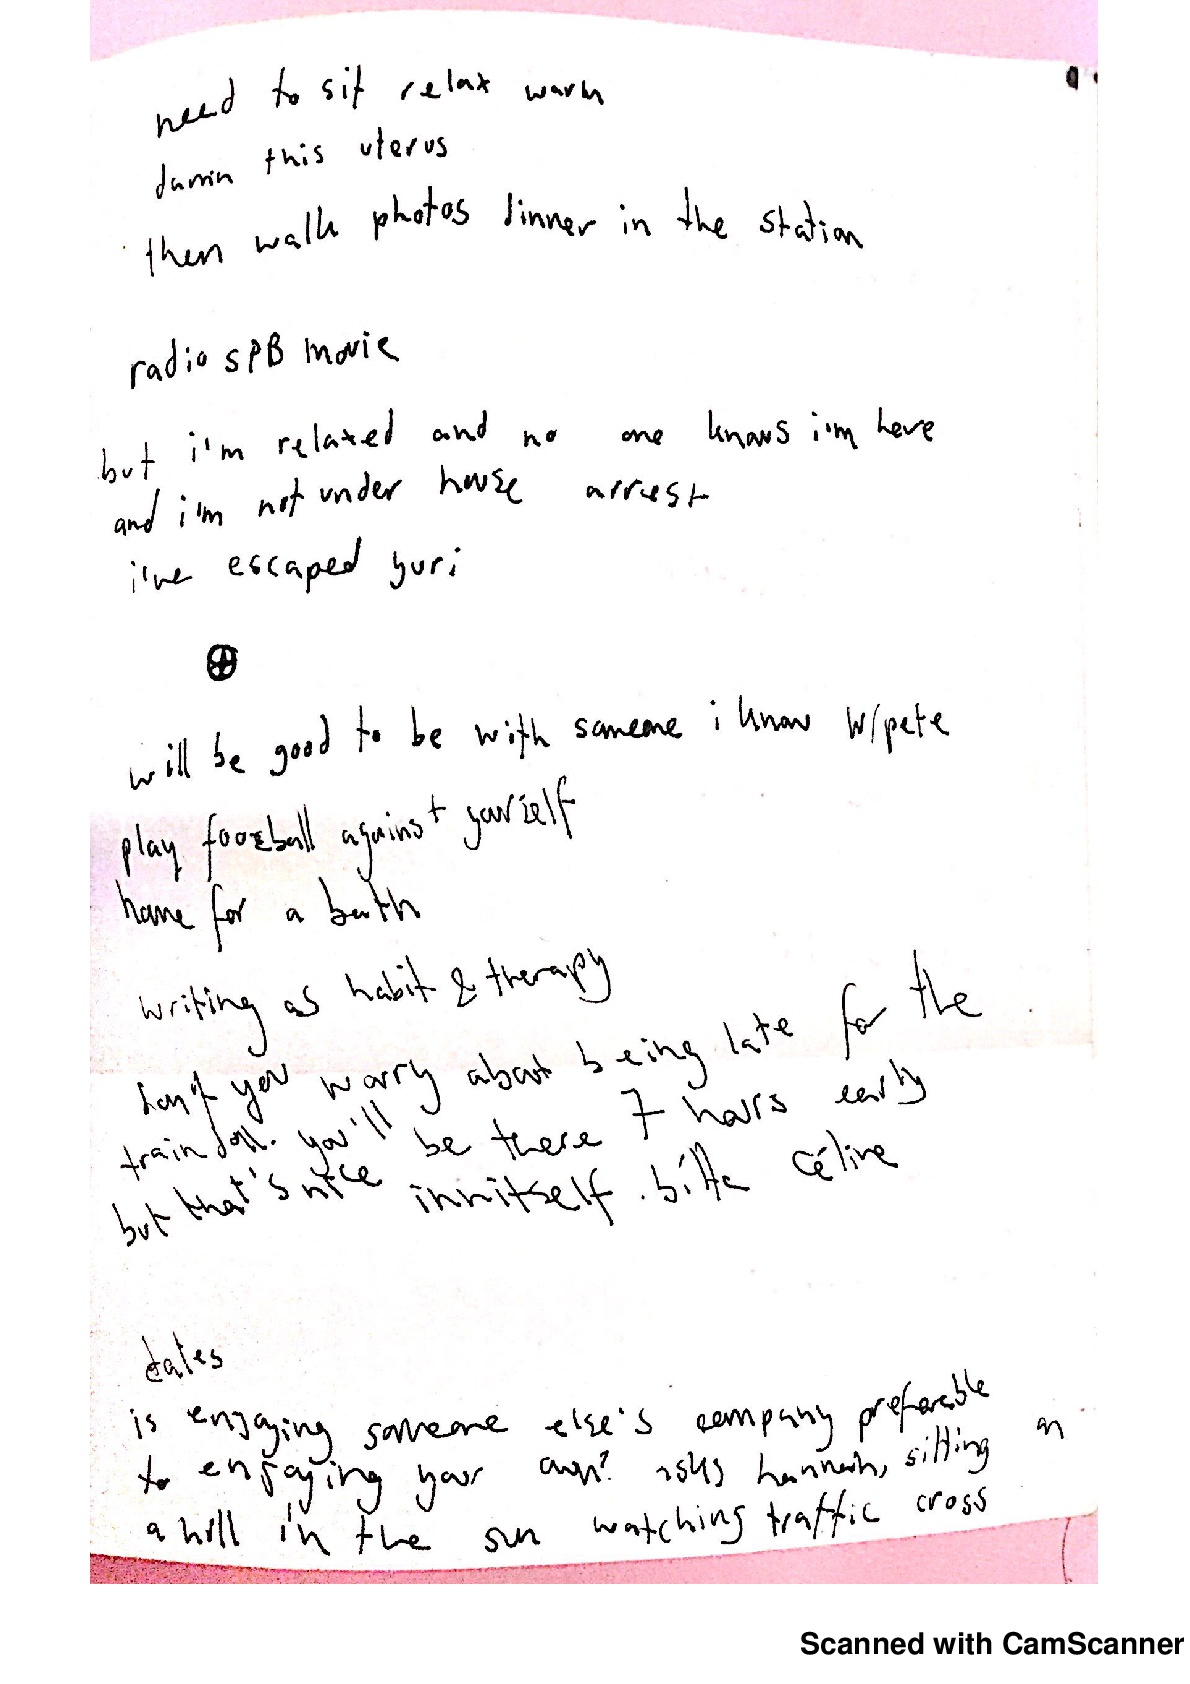 need to sit relax warm
damn this uterus
then walk photos dinner in the station
radio SPB movie
but i'm relaxed and no one knows i'm here
and i'm not under house arrest
i've escaped yuri
will be good to be with someone i know w/pete
play foozball against yourself
home for a bath
writing as habit & therapy
don't you worry about being late for the
train doll. you'll be there 7 hours early
but that's nice in itself. Céline
dates
is enjoying someone else's company preferable
to enjoying your own? asks hannah, sitting on
a hill in the sun watching traffic cross
Scanned with CamScanner